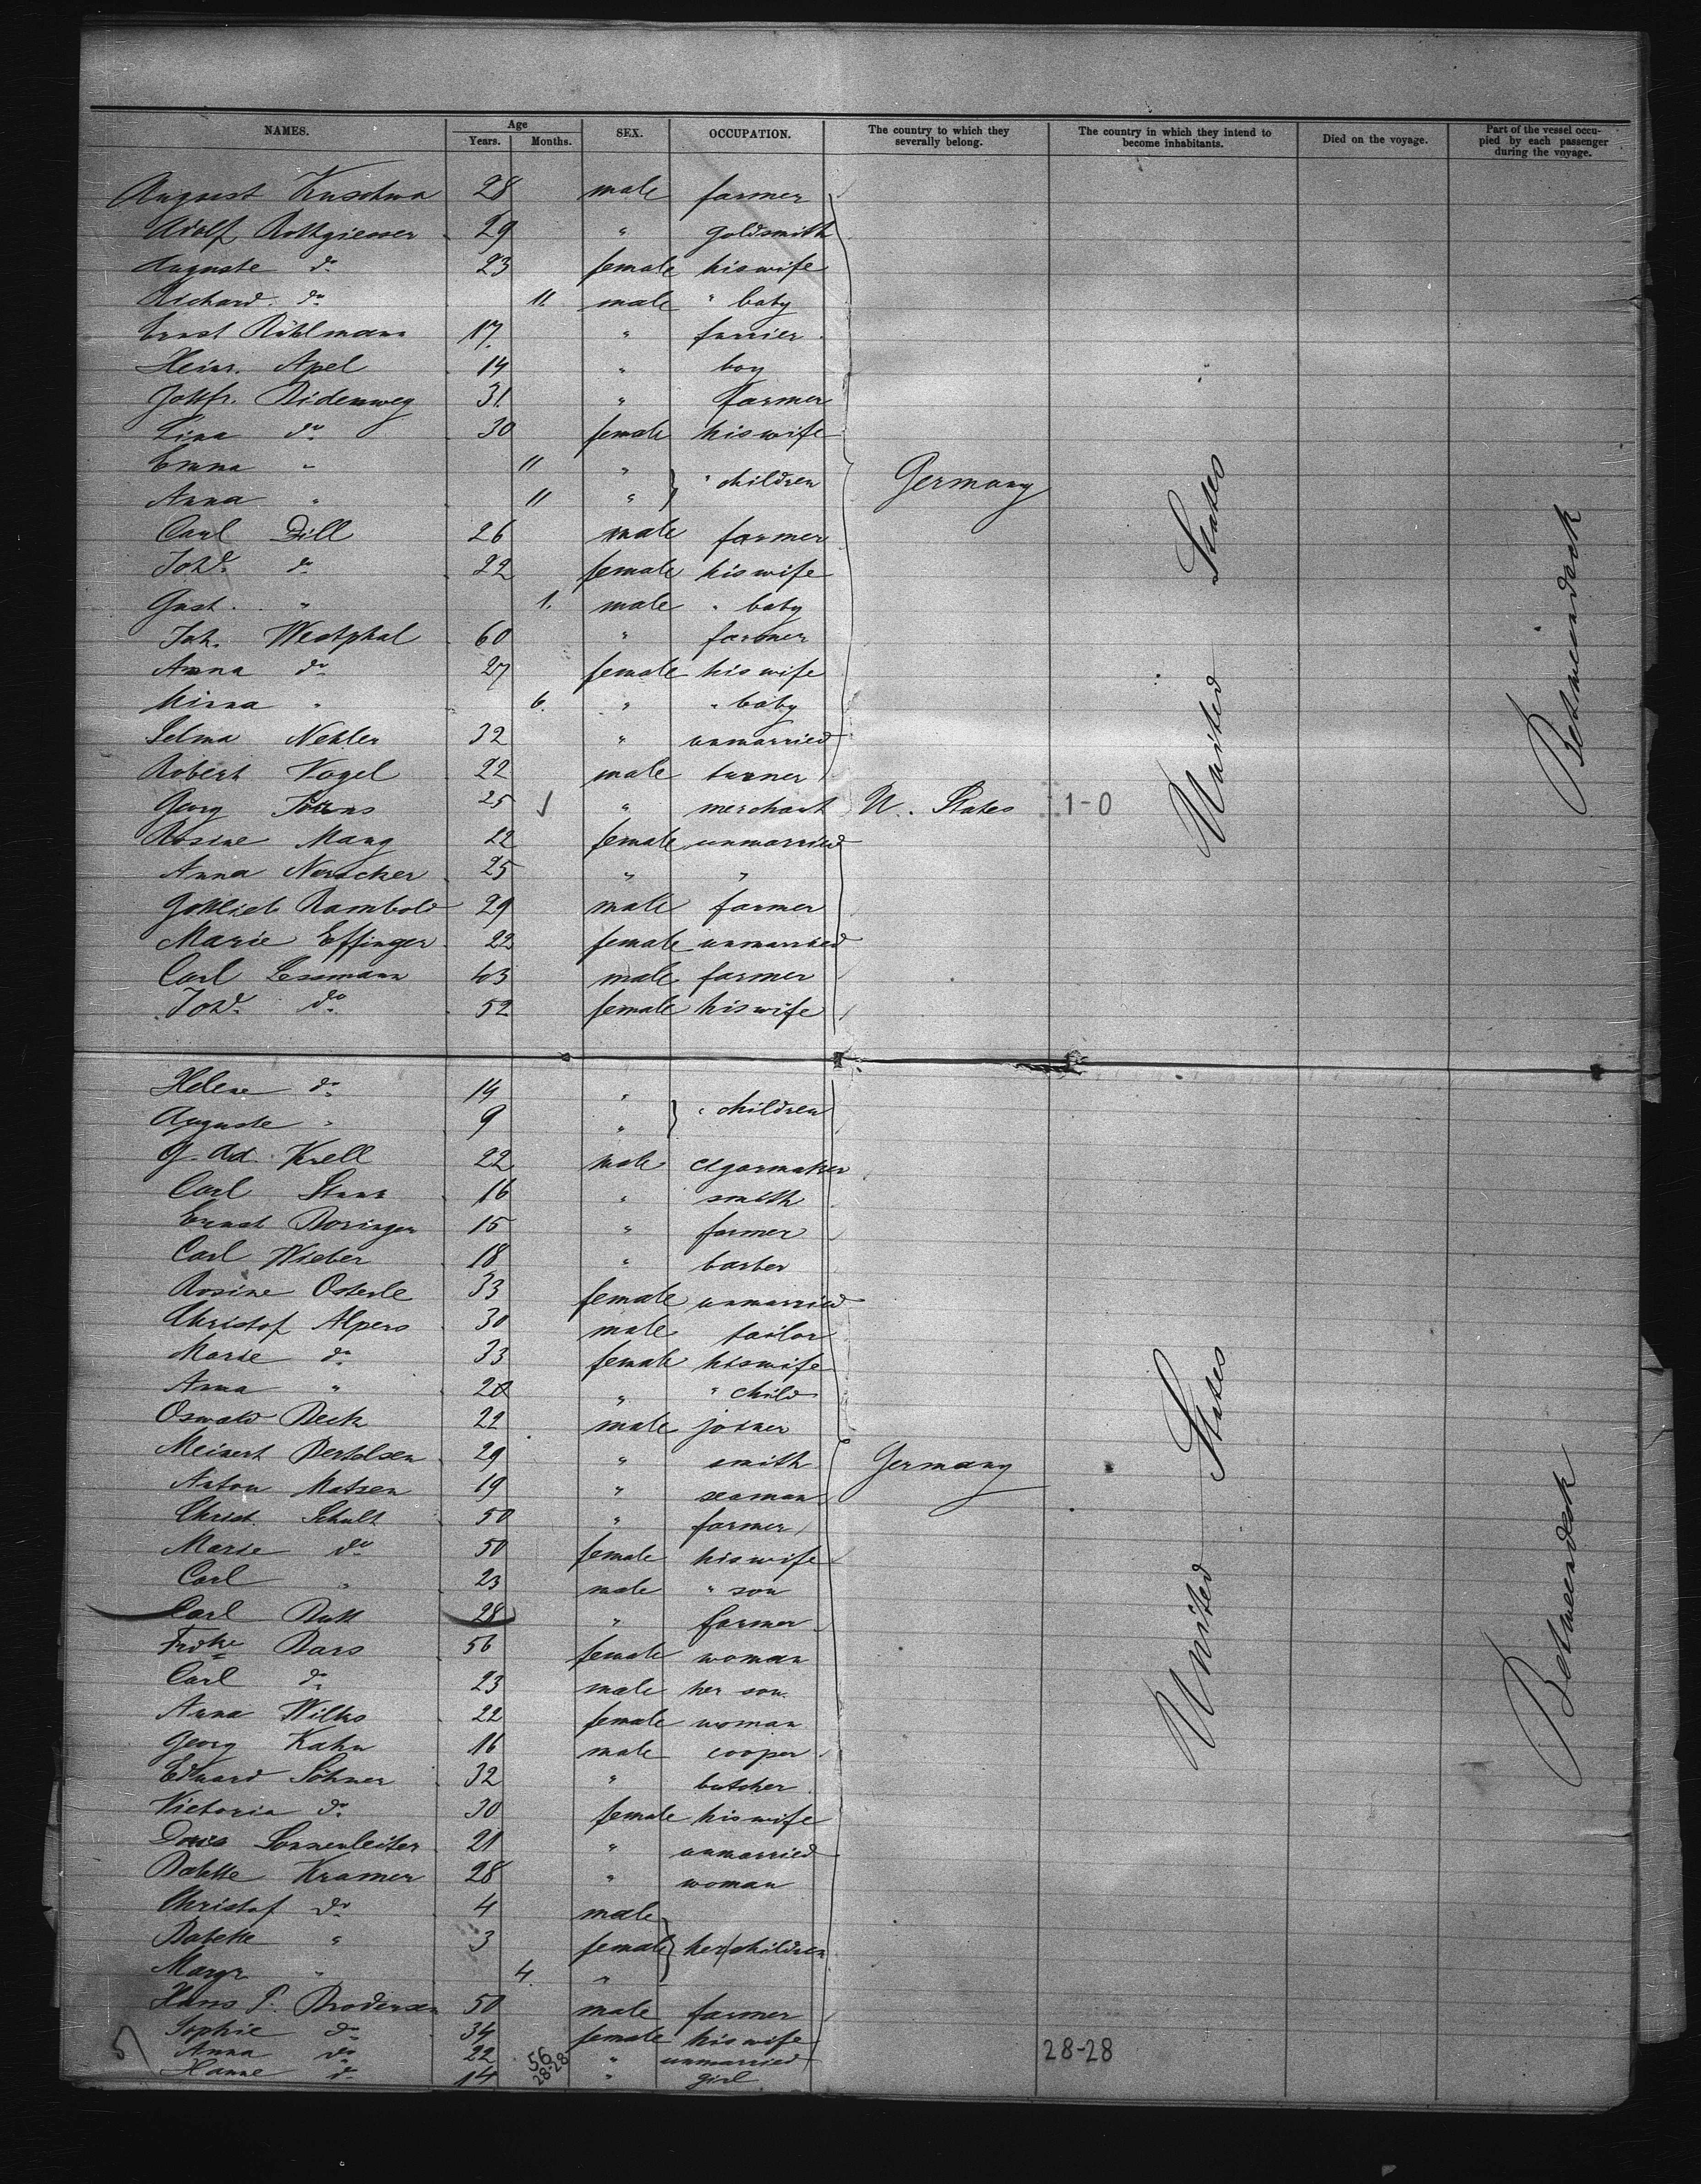 NAMES. Age Years. Months. SEX. OCCUPATION. The country to which they severally belong. The country in which they intend to become inhabitants. Died on the voyage. Part of the vessel occupied by each passenger during the voyage.
August 28 male farmer
Adolf Rothgiesser 29 " goldsmith
Auguste do 23 female his wife
Richard do 11 male " baby
Ernst Rühlmann 17 " furrier
Heinr. Apel 14 " boy
Gottfr. Bidenweg 31 " farmer
Lina do 30 female his wife
Emma " 11 " " children
Anna " 11 "
Germany
Carl Dill 26 male farmer
Johe. do 22 female his wife
Gust. " 1. male " baby
Joh. Westphal 60 " farmer
Anna do 27 female his wife
Minna " 6. " " baby
Selma Nehler 32 " unmarried
Robert Vogel 22 male turner
Georg 25 " merchant U. States 1-0
Rosine Mang 22 female unmarried
Anna 25 " "
Gottlieb Rambold 29 male farmer
Marie Effinger 22 female unmarried
Carl Lessmann 43 male farmer
Johe. do 52 female his wife
United States
Betweendeck
Helene do 14 " " children
Auguste " 9 "
G. Ad. Krell 22 male cigarmaker
Carl 16 " smith
Ernst Boringer 15 " farmer
Carl Wieber 18 " barber
Rosine Osterle 33 female unmarried
Christof Alpers 30 male tailor
Marie do 33 female his wife
Anna " " " child
Oswald Beck 22 male joiner
Meinert Bertelsen 29 " smith Germany
Anton Matzen 19 " seaman
Christ. Schult 50 " farmer
Marie do 50 female his wife
Carl " 23 male " son
Carl Butt 28 " farmer
Fridke Bars 56 female woman
Carl do 23 male her son
Anna Wilks 22 female woman
Georg Kahn 16 male cooper
Eduard Söhner 32 " butcher
Victoria do 30 female his wife
Doris Sonnenleiter 21 " unmarried
Babette Kramer 28 " woman
Christof do 4 male
Babette " 3 female her children
Margr " 4. "
Hans P. Brodersen 50 male farmer
Sophie do 34 female his wife
Anna do 22 " unmarried
Hanne do 14 " girl
United States
Betweendeck
56
28-28
28-28